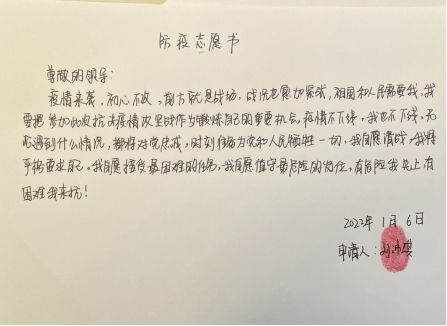 防疫志愿书
尊敬的领导：
疫情来袭，初心不改，前方就是战场，战况愈加紧张，祖国和人民需要我，我
要把参加此次抗击疫情攻坚战作为锻炼自己的重要机会，疫情不下线，我也不下线，无
论遇到什么情况，都将对党忠诚，时刻准备为党和人民牺牲一切，我自愿请战，我将
严格要求自己。我自愿接受最困难的任务，我自愿值守最危险的岗位，有危险我先上，有
困难我来扛！
2023年 1月6日
申请人：